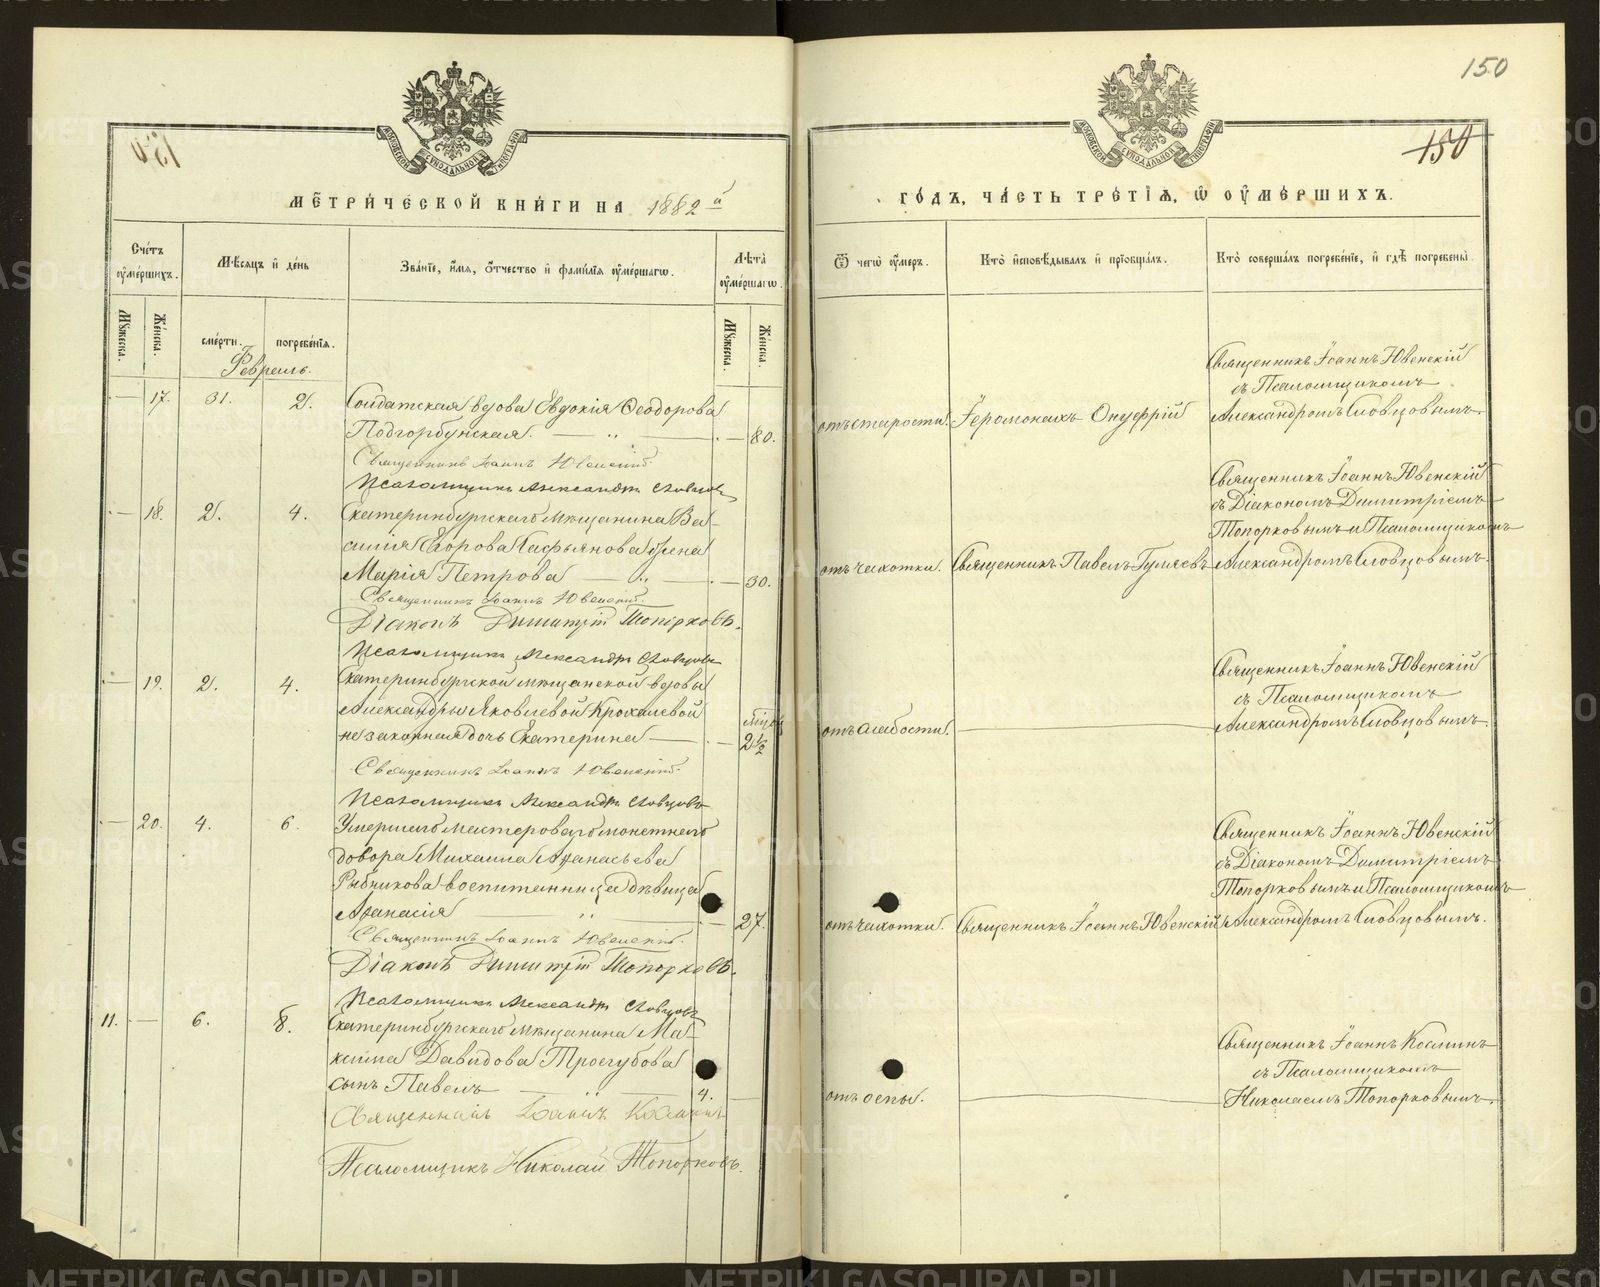 150
150
МЕТРИЧЕСКОЙ КНИГИ НА 1882й
ГОДЪ, ЧАСТЬ ТРЕТІЯ, Ѡ ОУМЕРШИХЪ.
Счетъ оумершихъ.
Мѣсяцъ и день
Званіе, имя, отчество и фамилія оумершагѡ.
Лѣта оумершагѡ.
Ѿ чегѡ оумеръ.
Кто исповѣдывалъ и пріобщалъ.
Кто совершалъ погребеніе, и гдѣ погребены.
Мужеска.
Женска.
смерти.
погребенія.
Мужеска.
Женска.
Февраль.
17. 31. 2. Солдатская вдова Евдокія Ѳеодорова
Подгорбунская. — „ — 80.
отъ старости. Іеромонахъ Онуфрій
Священникъ Іоаннъ Ювенскій
съ Псаломщикомъ
Александромъ Словцовымъ.
Священникъ Іоаннъ Ювенскій.
Псаломщикъ Александръ Словцовъ
18. 2. 4. Екатеринбургскаго мѣщанина Ва-
силія Егорова Сафьянова жена
Марія Петрова — „ — 30.
отъ чахотки. Священникъ Павелъ Гуляевъ
Священникъ Іоаннъ Ювенскій
съ Діакономъ Димитріемъ
Топорковымъ и Псаломщикомъ
Александромъ Словцовымъ.
Священникъ Іоаннъ Ювенскій.
Діаконъ Димитрій Топорковъ.
Псаломщикъ Александръ Словцовъ
19. 2. 4. Екатеринбургской мѣщанской вдовы
Александры Яковлевой Крохалевой
незаконная дочь Екатерина — 2½
отъ слабости.
Священникъ Іоаннъ Ювенскій
съ Псаломщикомъ
Александромъ Словцовымъ.
Священникъ Іоаннъ Ювенскій.
Псаломщикъ Александръ Словцовъ
20. 4. 6. Умершаго мастероваго монетнаго
двора Михаила Аѳанасьева
Рыбникова воспитанница дѣвица
Аѳанасія — „ — 27.
отъ чахотки. Священникъ Іоаннъ Ювенскій
Священникъ Іоаннъ Ювенскій
съ Діакономъ Димитріемъ
Топорковымъ и Псаломщикомъ
Александромъ Словцовымъ.
Священникъ Іоаннъ Ювенскій.
Діаконъ Димитрій Топорковъ.
Псаломщикъ Александръ Словцовъ
11. 6. 8. Екатеринбургскаго мѣщанина Ма-
ксима Давидова Трегубова
сынъ Павелъ — 4.
отъ оспы.
Священникъ Іоаннъ Косминъ
съ Псаломщикомъ
Николаемъ Топорковымъ.
Священникъ Іоаннъ Косминъ
Псаломщикъ Николай Топорковъ.